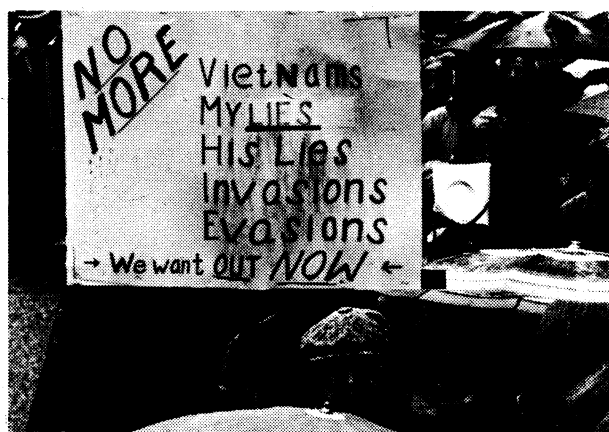 NO
MORE
VietNams
MY LIES
His Lies
Invasions
Evasions
→ We want OUT NOW ←